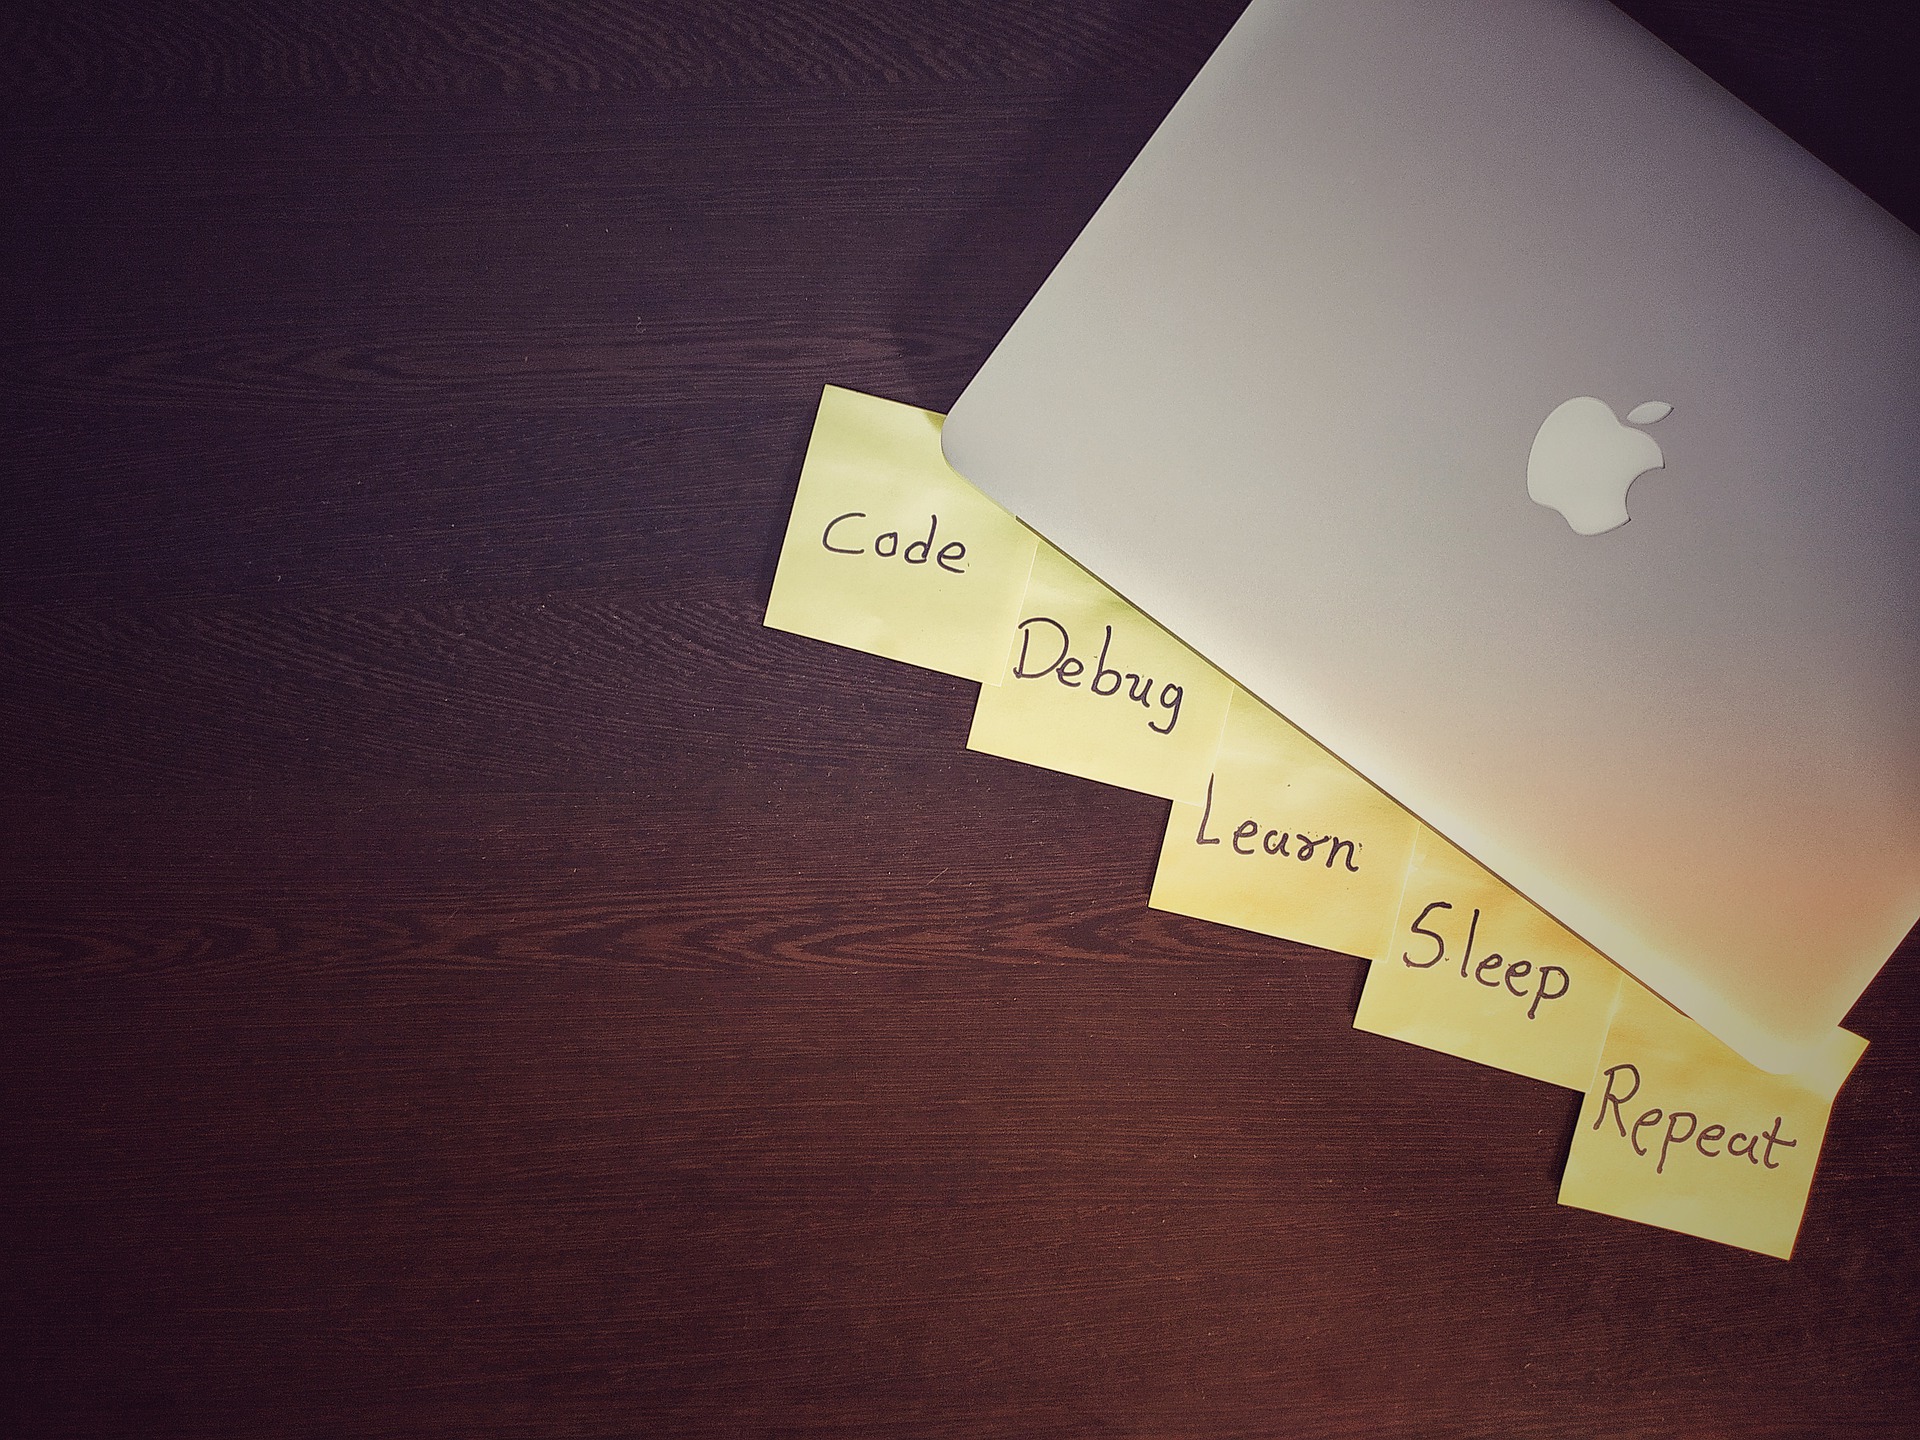 Code
Debug
Learn
Sleep
Repeat